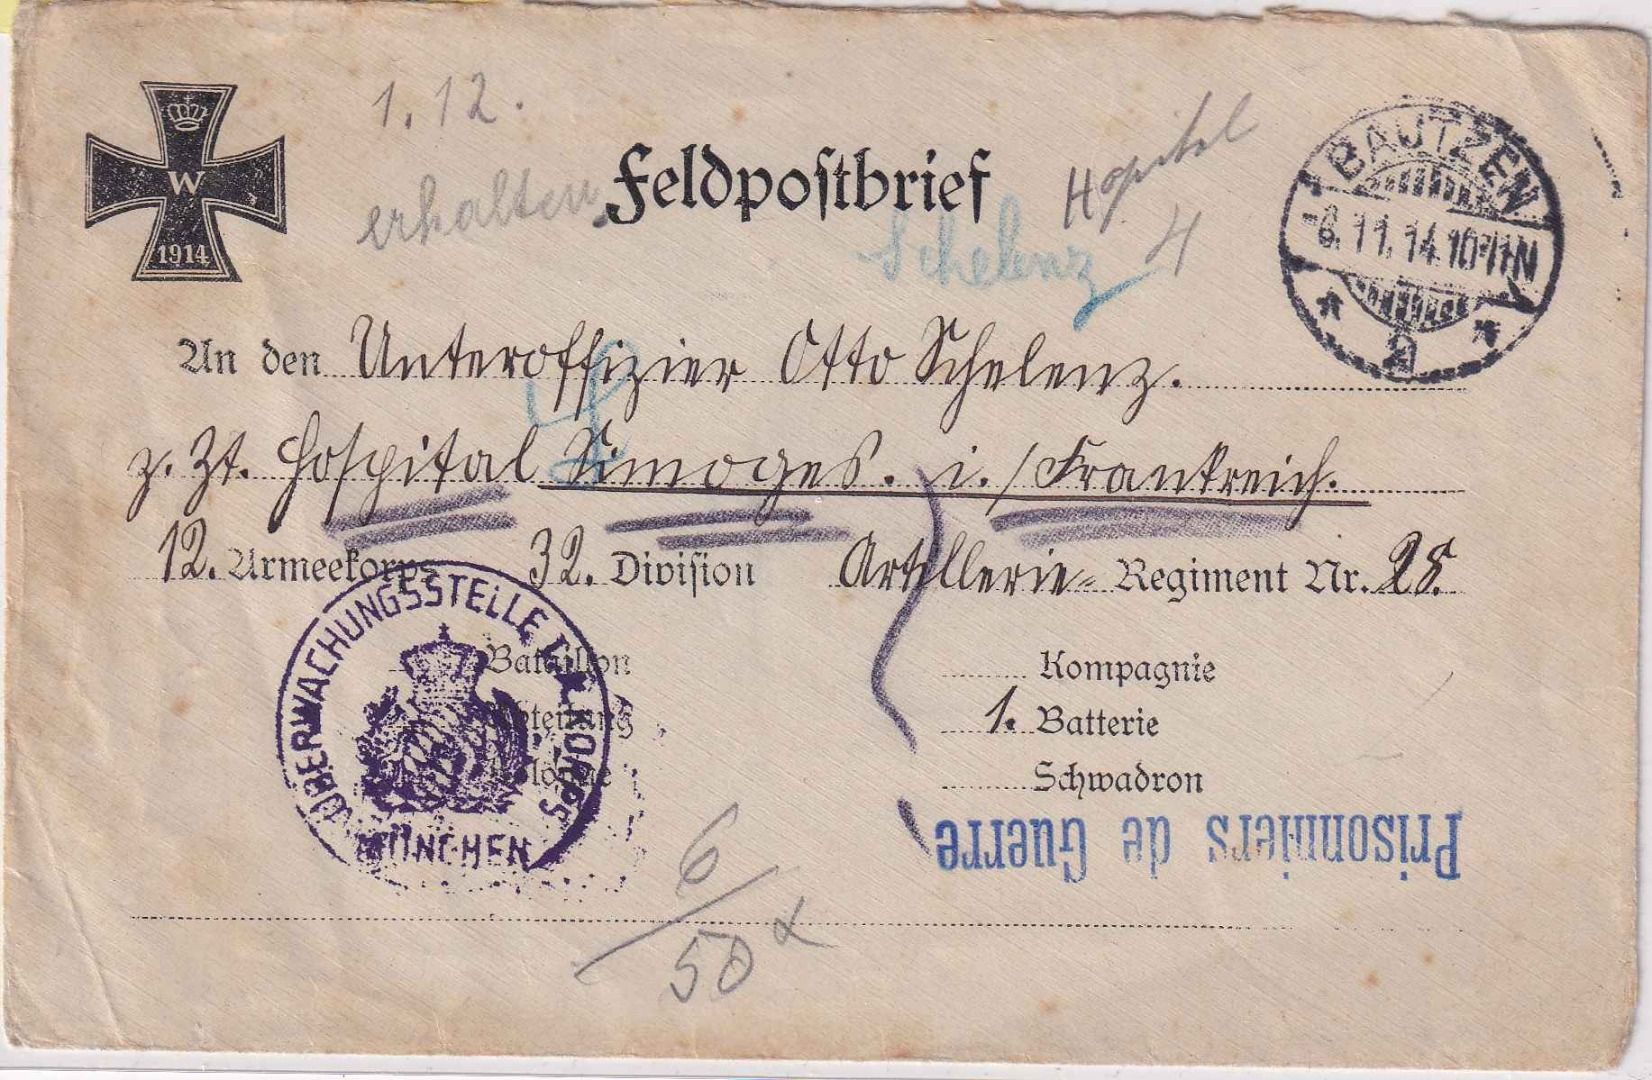 W
1914
1. 12.
erhalten.
Feldpostbrief
Hopital
4
Schelenz
BAUTZEN
-8.11.14.10-11N
* a *
An den Unteroffizier Otto Schelenz.
z. Zt. Hospital Limoges. i./Frankreich.
12. Armeekorps 32. Division Artillerie- Regiment Nr. 28.
Bataillon
Abteilung
Kolonne
Kompagnie
1. Batterie
Schwadron
ÜBERWACHUNGSSTELLE I. A. KORPS
MÜNCHEN
Prisonniers de Guerre
6
50